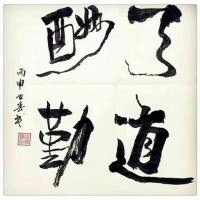 天道
酬勤
丙申